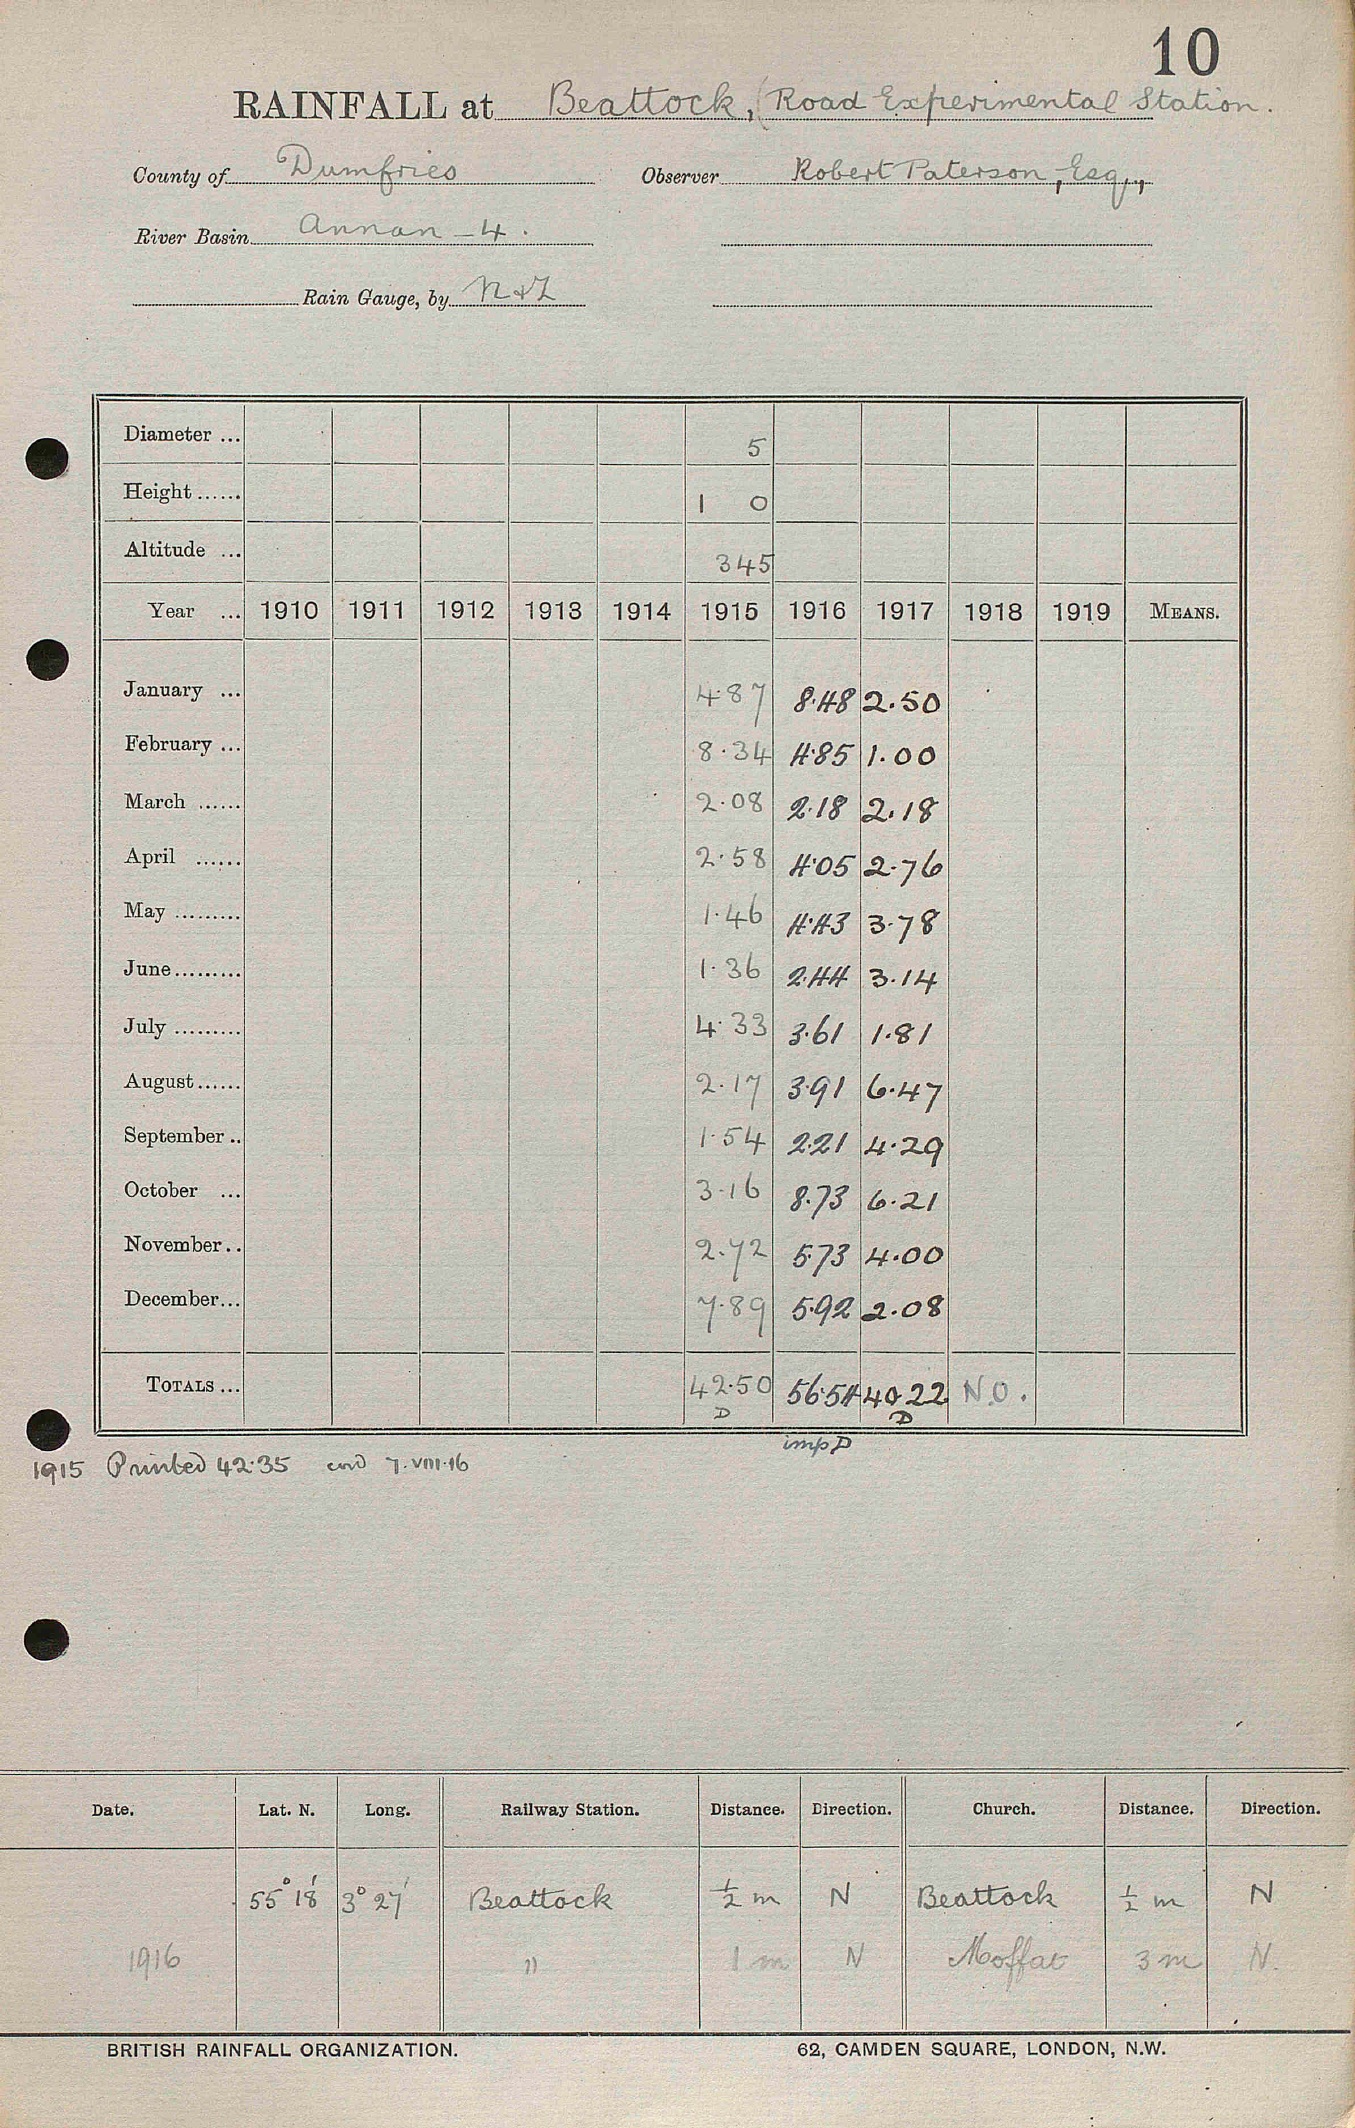 10
RAINFALL at Beattock, (Road Experimental Station.
County of Dumfries Observer Robert Paterson, Esq.,
River Basin Annan - 4.
Rain Gauge, by N & Z
Diameter ... 5
Height ...... 1 0
Altitude ... 345
Year ... 1910 1911 1912 1913 1914 1915 1916 1917 1918 1919 MEANS.
January ... 4.87 8.48 2.50
February ... 8.34 4.85 1.00
March ...... 2.08 2.18 2.18
April ...... 2.58 4.05 2.76
May ......... 1.46 4.43 3.78
June ......... 1.36 2.44 3.14
July ......... 4.33 3.61 1.81
August ...... 2.17 3.91 6.47
September .. 1.54 2.21 4.29
October ... 3.16 8.73 6.21
November .. 2.72 5.73 4.00
December ... 7.89 5.92 2.08
TOTALS ... 42.50 56.54 40.22 N.O.
D D
imp D
1915 Printed 42.35 7.VIII.16
Date. Lat. N. Long. Railway Station. Distance. Direction. Church. Distance. Direction.
55° 18' 3° 27' Beattock ½ m N Beattock ½ m N
1916 " 1 m N Moffat 3 m N.
BRITISH RAINFALL ORGANIZATION. 62, CAMDEN SQUARE, LONDON, N.W.